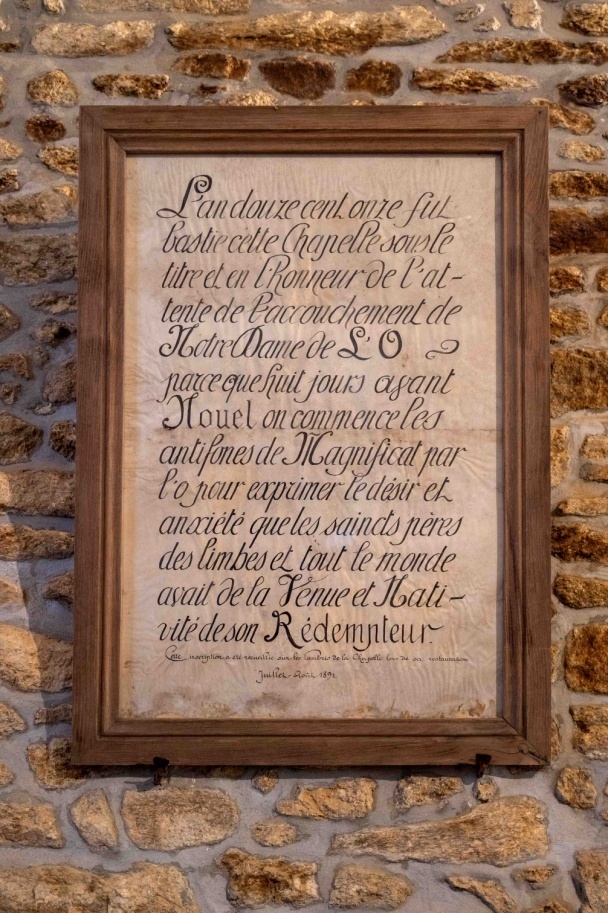 L'an douze cent onze fut
bastie cette Chapelle sous le
titre et en l'honneur de l'at-
tente de l'accouchement de
Notre Dame de L'O
parce que huit jours avant
Nouel on commence les
antifones de Magnificat par
l'o pour exprimer le désir et
anxiété que les saincts pères
des limbes et tout le monde
avait de la Venue et Nati-
vité de son Rédempteur.
Cette inscription a été recueillie sur les lambris de la Chapelle lors de sa restauration
Juillet-Août 1891